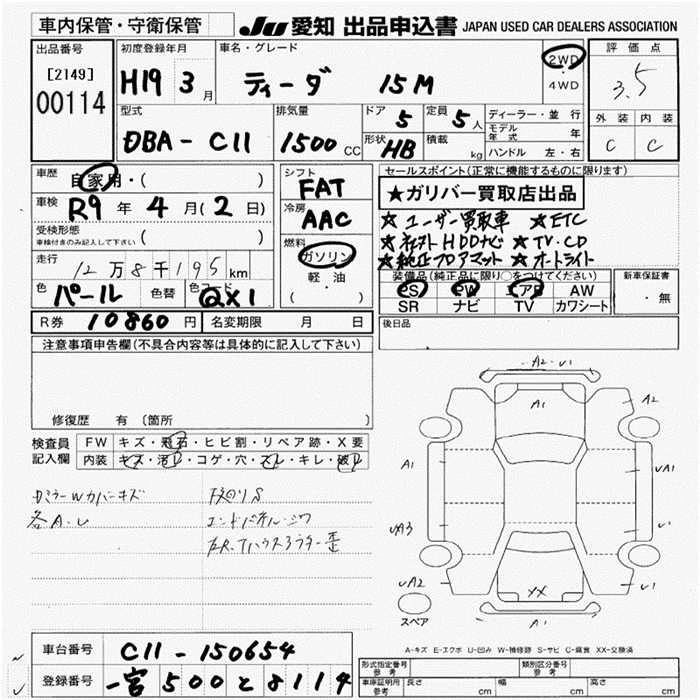 車内保管・守衛保管
JU 愛知 出品申込書 JAPAN USED CAR DEALERS ASSOCIATION
出品番号
[2149]
00114
初度登録年月
H19 3 月
車名・グレード
ティーダ 15M
2WD
・
4WD
評価点
3.5
外装 内装
C C
型式
DBA-C11
排気量
1500 CC
ドア 5
形状 HB
定員 5 人
積載 kg
ディーラー・並行
モデル年式 年
ハンドル 左・右
車歴
自家用・( )
車検
R9 年 4 月(2日)
受検形態
車検付きのみ記入して下さい ( )
走行
12万8千195 km
色 パール 色替 色コード QX1
シフト
FAT
冷房
AAC
燃料
ガソリン
軽・油
( ・ )
セールスポイント(正常に機能するものに限ります)
★ガリバー買取店出品
☆ユーザー買取車 ☆ETC
☆社外HDDナビ ☆TV・CD
☆純正フロアマット ☆オートライト
装備品(純正品に限り○をつけてください)
PS PW エアB AW
SR ナビ TV カワシート
新車保証書
・無
R券 10860 円 名変期限 月 日
後日品
注意事項申告欄(不具合内容等は具体的に記入して下さい)
修復歴 有(箇所 )
検査員
記入欄
FW キズ・飛石・ヒビ割・リペア跡・X要
内装 キズ・汚レ・コゲ・穴・スレ・キレ・破レ
カミラーWカバーキズ
各A・U
下廻りS
エンドパネル・シワ
A2・U1
A1
A2
A1
UA1
UA3
U1
UA2
XX
U1
A1
スペア
A-キズ E-エクボ U-凹み W-補修跡 S-サビ C-腐食 XX-交換済
車台番号 C11-150654
登録番号 一宮 500 と 8114
形式指定番号 類別区分番号
車庫証明用参考 長さ cm 幅 cm 高さ cm